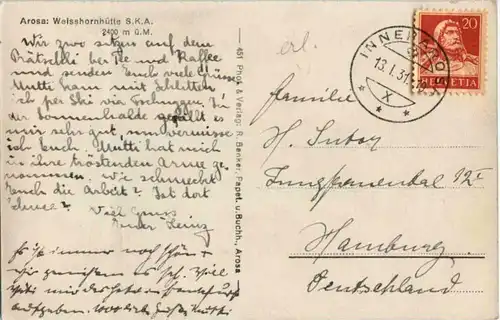 Arosa: Weisshornhütte S.K.A.
2400 m ü.M.
Wir zwo sitzen auf dem
Brätschli bei Tee und Kaffee
und senden Euch viele Grüsse
Mutti kam mit Schlitten
ich per Ski via Tschuggen. In
der Sonnenhalde gefällt es
mir sehr gut, nun vermisse
ich Euch. Mutti hat mich
in ihre tröstenden Arme ge-
nommen. Wie schmeckt
Euch die Arbeit? Ist dort
Schnee?
Viel Gruss
Euer Heinz
Es ist immer noch schön &
wir geniessen es sehr. Will
mir
aufgeben. Mutti
— 451 Phot. & Verlag: R. Benker, Papet. u. Buchh., Arosa
erl.
INNERAROSA
13.I.31
X
20
HELVETIA
Familie
H. Suter
Jungfrauenthal 12
Hamburg
Deutschland